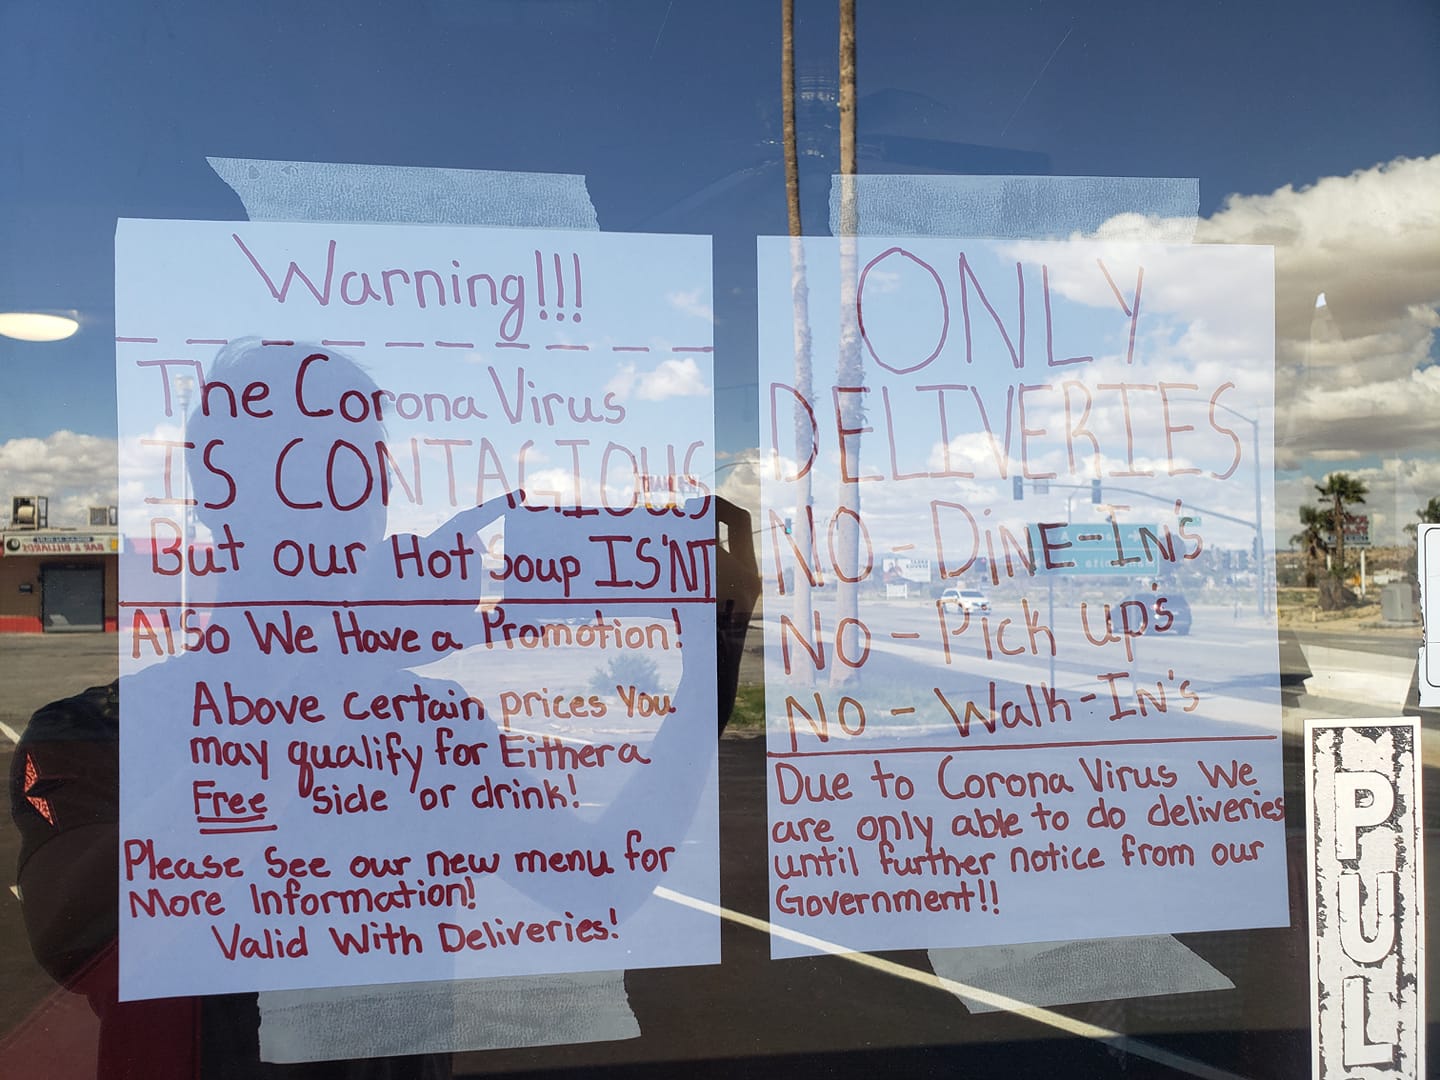 Warning!!!
The Corona Virus
IS CONTAGIOUS
But our Hot Soup IS'NT
Also We Have a Promotion!
Above certain prices You
may qualify for Either a
Free side or drink!
Please See our new menu for
More Information!
Valid With Deliveries!
ONLY
DELIVERIES
NO - DiNE-IN's
NO - Pick up's
NO - Walk-IN's
Due to Corona Virus We
are only able to do deliveries
until further notice from our
Government!!
PUL
BAR & BILLIARDS